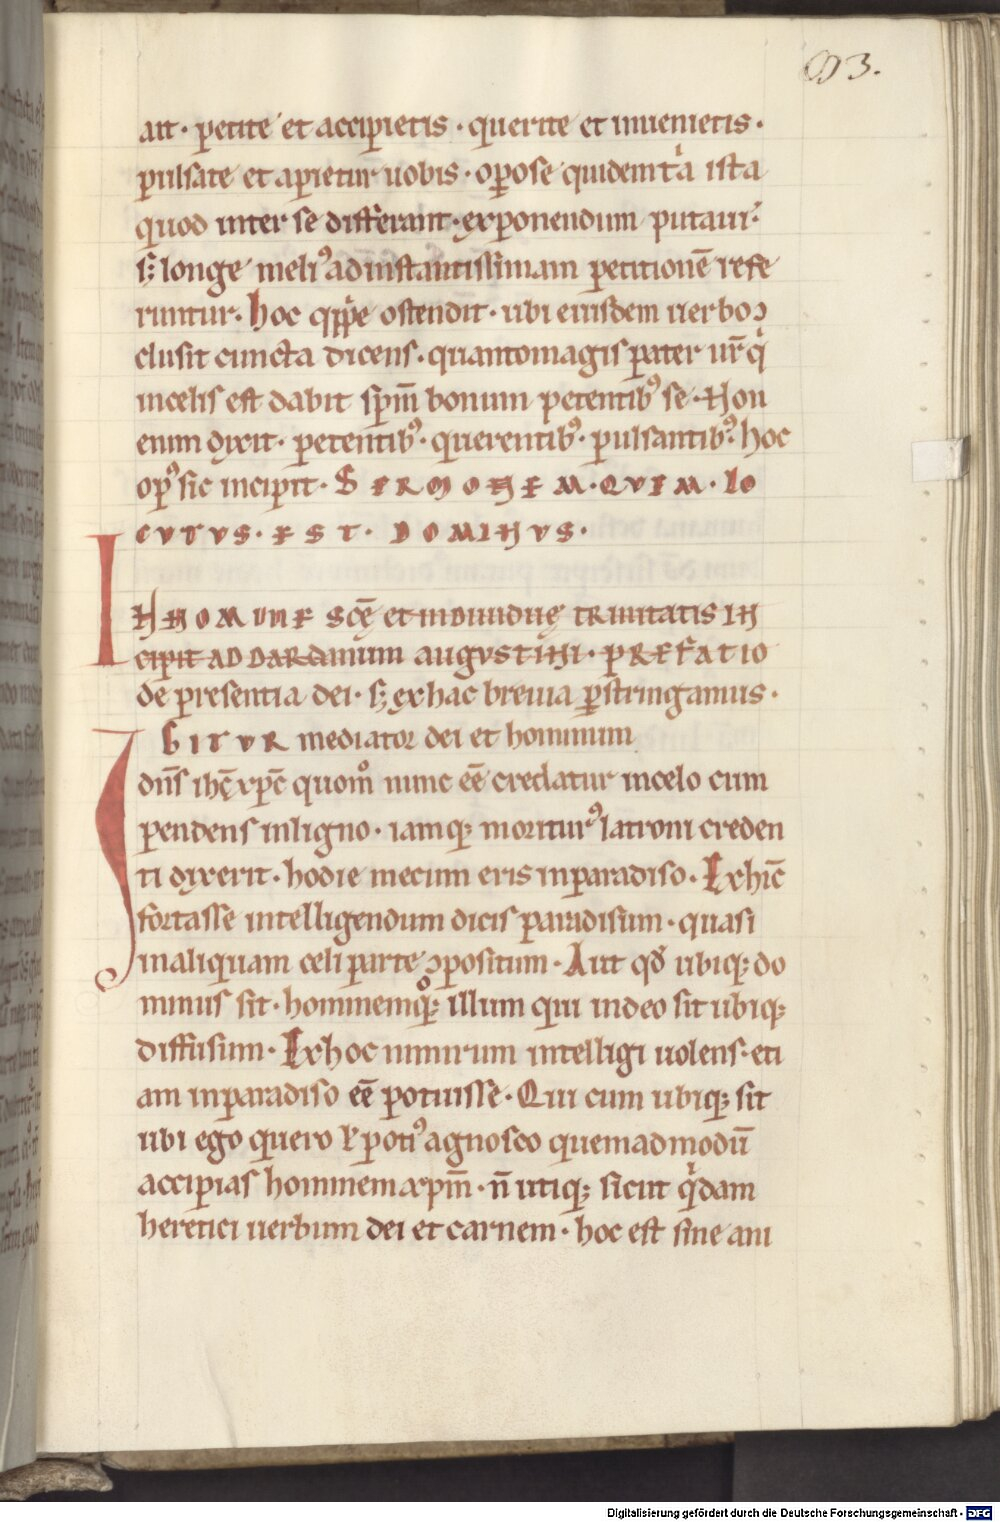 93.
ait · petite et accipietis · querite et inuenietis ·
pulsate et aperietur uobis · opose quidem tͥa ista
quod inter se differant · exponendum putaui ·
sꝫ longe meliꝰ ad instantissimam petitionē refe
runtur. hoc qippe ostendit · ubi eiusdem uerbo ɔ
clusit cuncta dicens · quanto magis pater ur̄ qͥ
in celis est dabit spm̄ bonum petentibꝰ se · Non
enim dixit · petentibꝰ · querentibꝰ · pulsantibꝰ. hoc
opꝰ sic incipit · SERMONEM · QVEM · LO
CVTVS · EST · DOMINVS ·
IN NOMINE scę et indiuiduę trinitatis IN
cipit AD DARdanum augvstini · prefatio
de presentia dei · sꝫ ex hac breuia pstringamus ·
IGITVR mediator dei et hominum
dn̄s ihc̄ xpc̄ quomͦ nunc eē credatur in celo cum
pendens in ligno · iamqꝫ moriturꝰ latroni creden
ti dixerit · hodie mecum eris in paradiso · Ex hic̄
fortasse intelligendum dicis paradisum · quasi
in aliquam celi parte ɔpositum · Aut qd̄ ubiqꝫ do
minus sit · hominemqͦꝫ illum qui in deo sit ubiqꝫ
diffusum · Ex hoc nimirum intelligi uolens · eti
am in paradiso eē potuisse · Qui cum ubiqꝫ sit
ubi ego quero ł potiꝰ agnosco quemadmodū
accipias hominem xpm̄ · n̄ utiqꝫ sicut qͥdam
heretici uerbum dei et carnem · hoc est sine ani
Digitalisierung gefördert durch die Deutsche Forschungsgemeinschaft - DFG